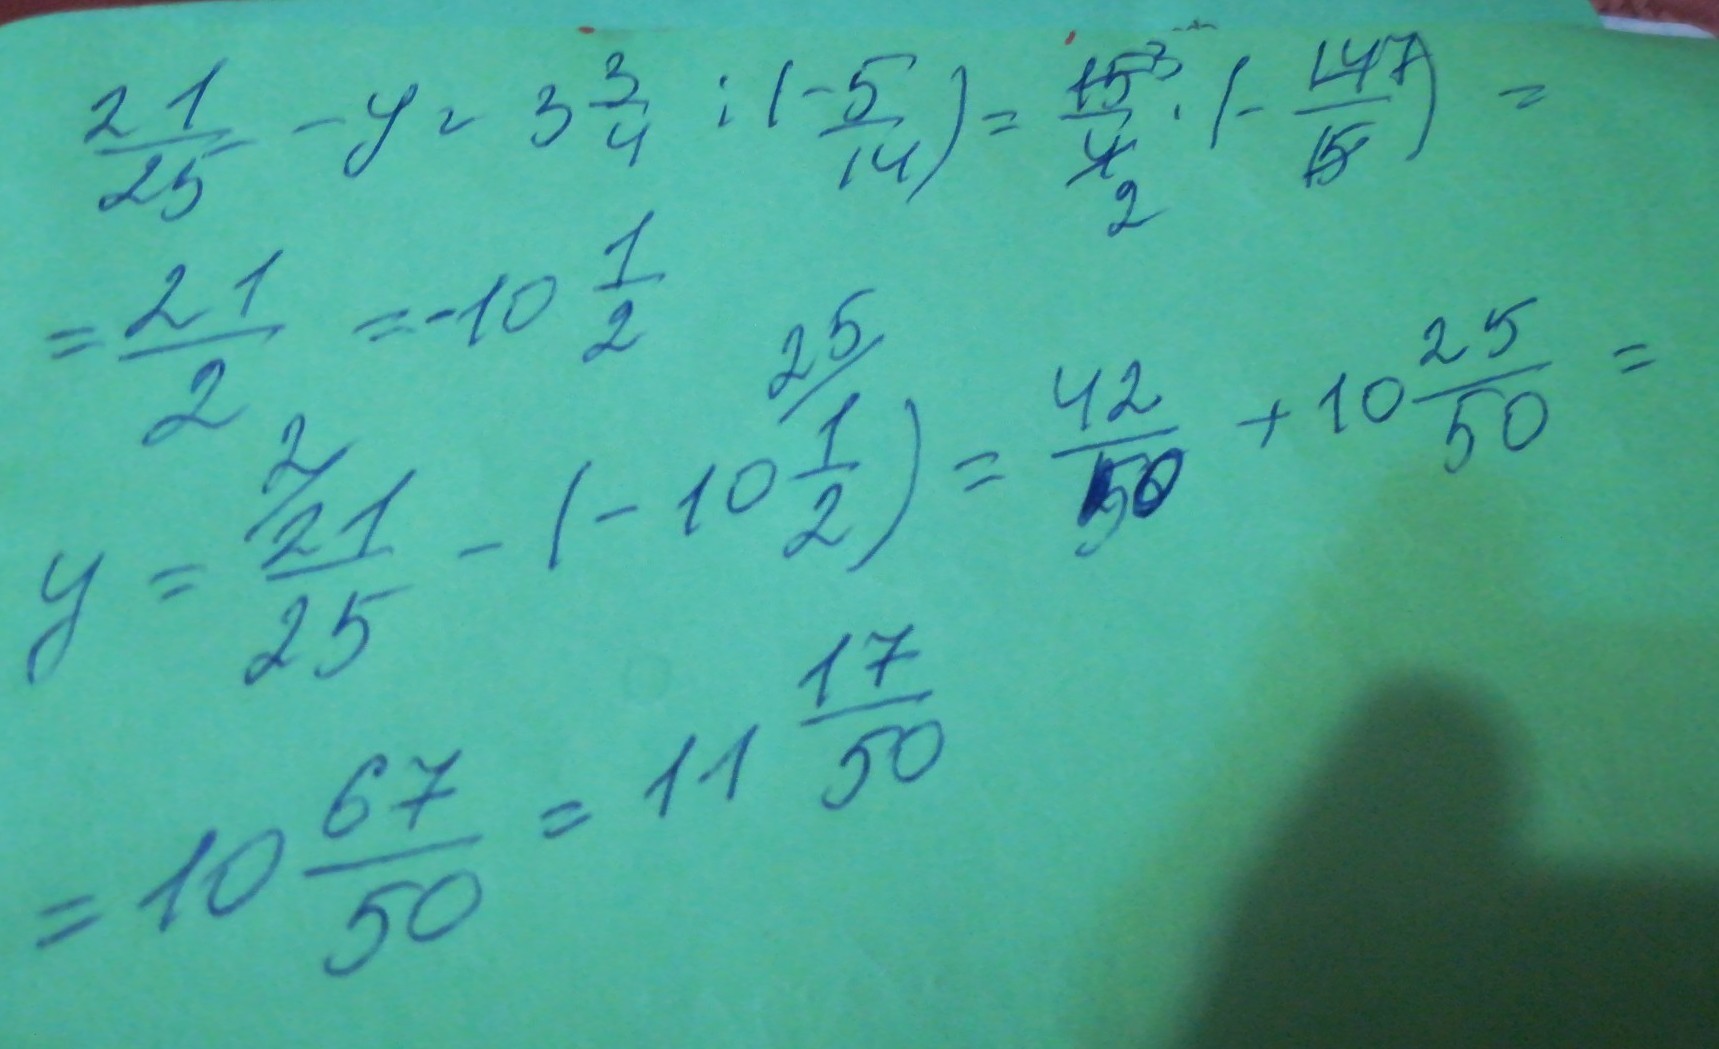 21/25 - y = 3 3/4 : (-5/14) = 15³/4₂ · (-14⁷/5) =
= 21/2 = -10 1/2
y = 21²⁄/25 - (-10 1²⁵⁄/2) = 42/50 + 10 25/50 =
= 10 67/50 = 11 17/50